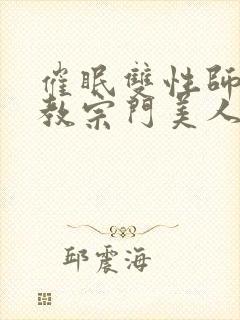 催眠雙性師
教宗門美人
邱震海